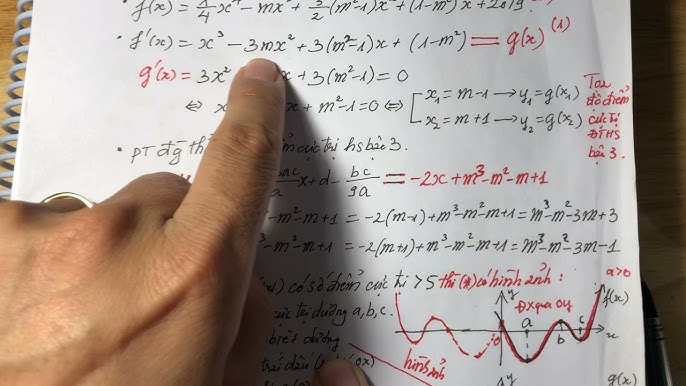 f(x) = 1/4 x⁴ - mx³ + 3/2 (m²-1)x² + (1-m²)x + 2019
• f'(x) = x³ - 3mx² + 3(m²-1)x + (1-m²) = g(x) (1)
g'(x) = 3x² x + 3(m²-1) = 0
⇔ x x + m²-1 = 0 ⇔ [ x₁ = m-1 → y₁ = g(x₁)
x₂ = m+1 → y₂ = g(x₂)
Toạ độ điểm cực trị ĐTHS bậc 3.
• PT đg th cực trị hs bậc 3.
x + d - bc/9a = -2x + m³-m²-m+1
-m²-m+1 = -2(m-1)+m³-m²-m+1 = m³-m²-3m+3
³-m²-m+1 = -2(m+1)+m³-m²-m+1 = m³-m²-3m-1
có số điểm cực trị > 5 thì (*) có hình ảnh : a>0
cực trị dương a, b, c.
dương
trái dấu ox)
y
Đx qua oy
f(x)
0 a b c x
hình ảnh
y
g(x)